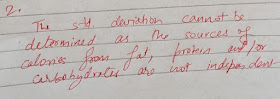 2.
The std. deviation cannot be
determined as the sources of
calories from fat, protein and/or
carbohydrates are not independent